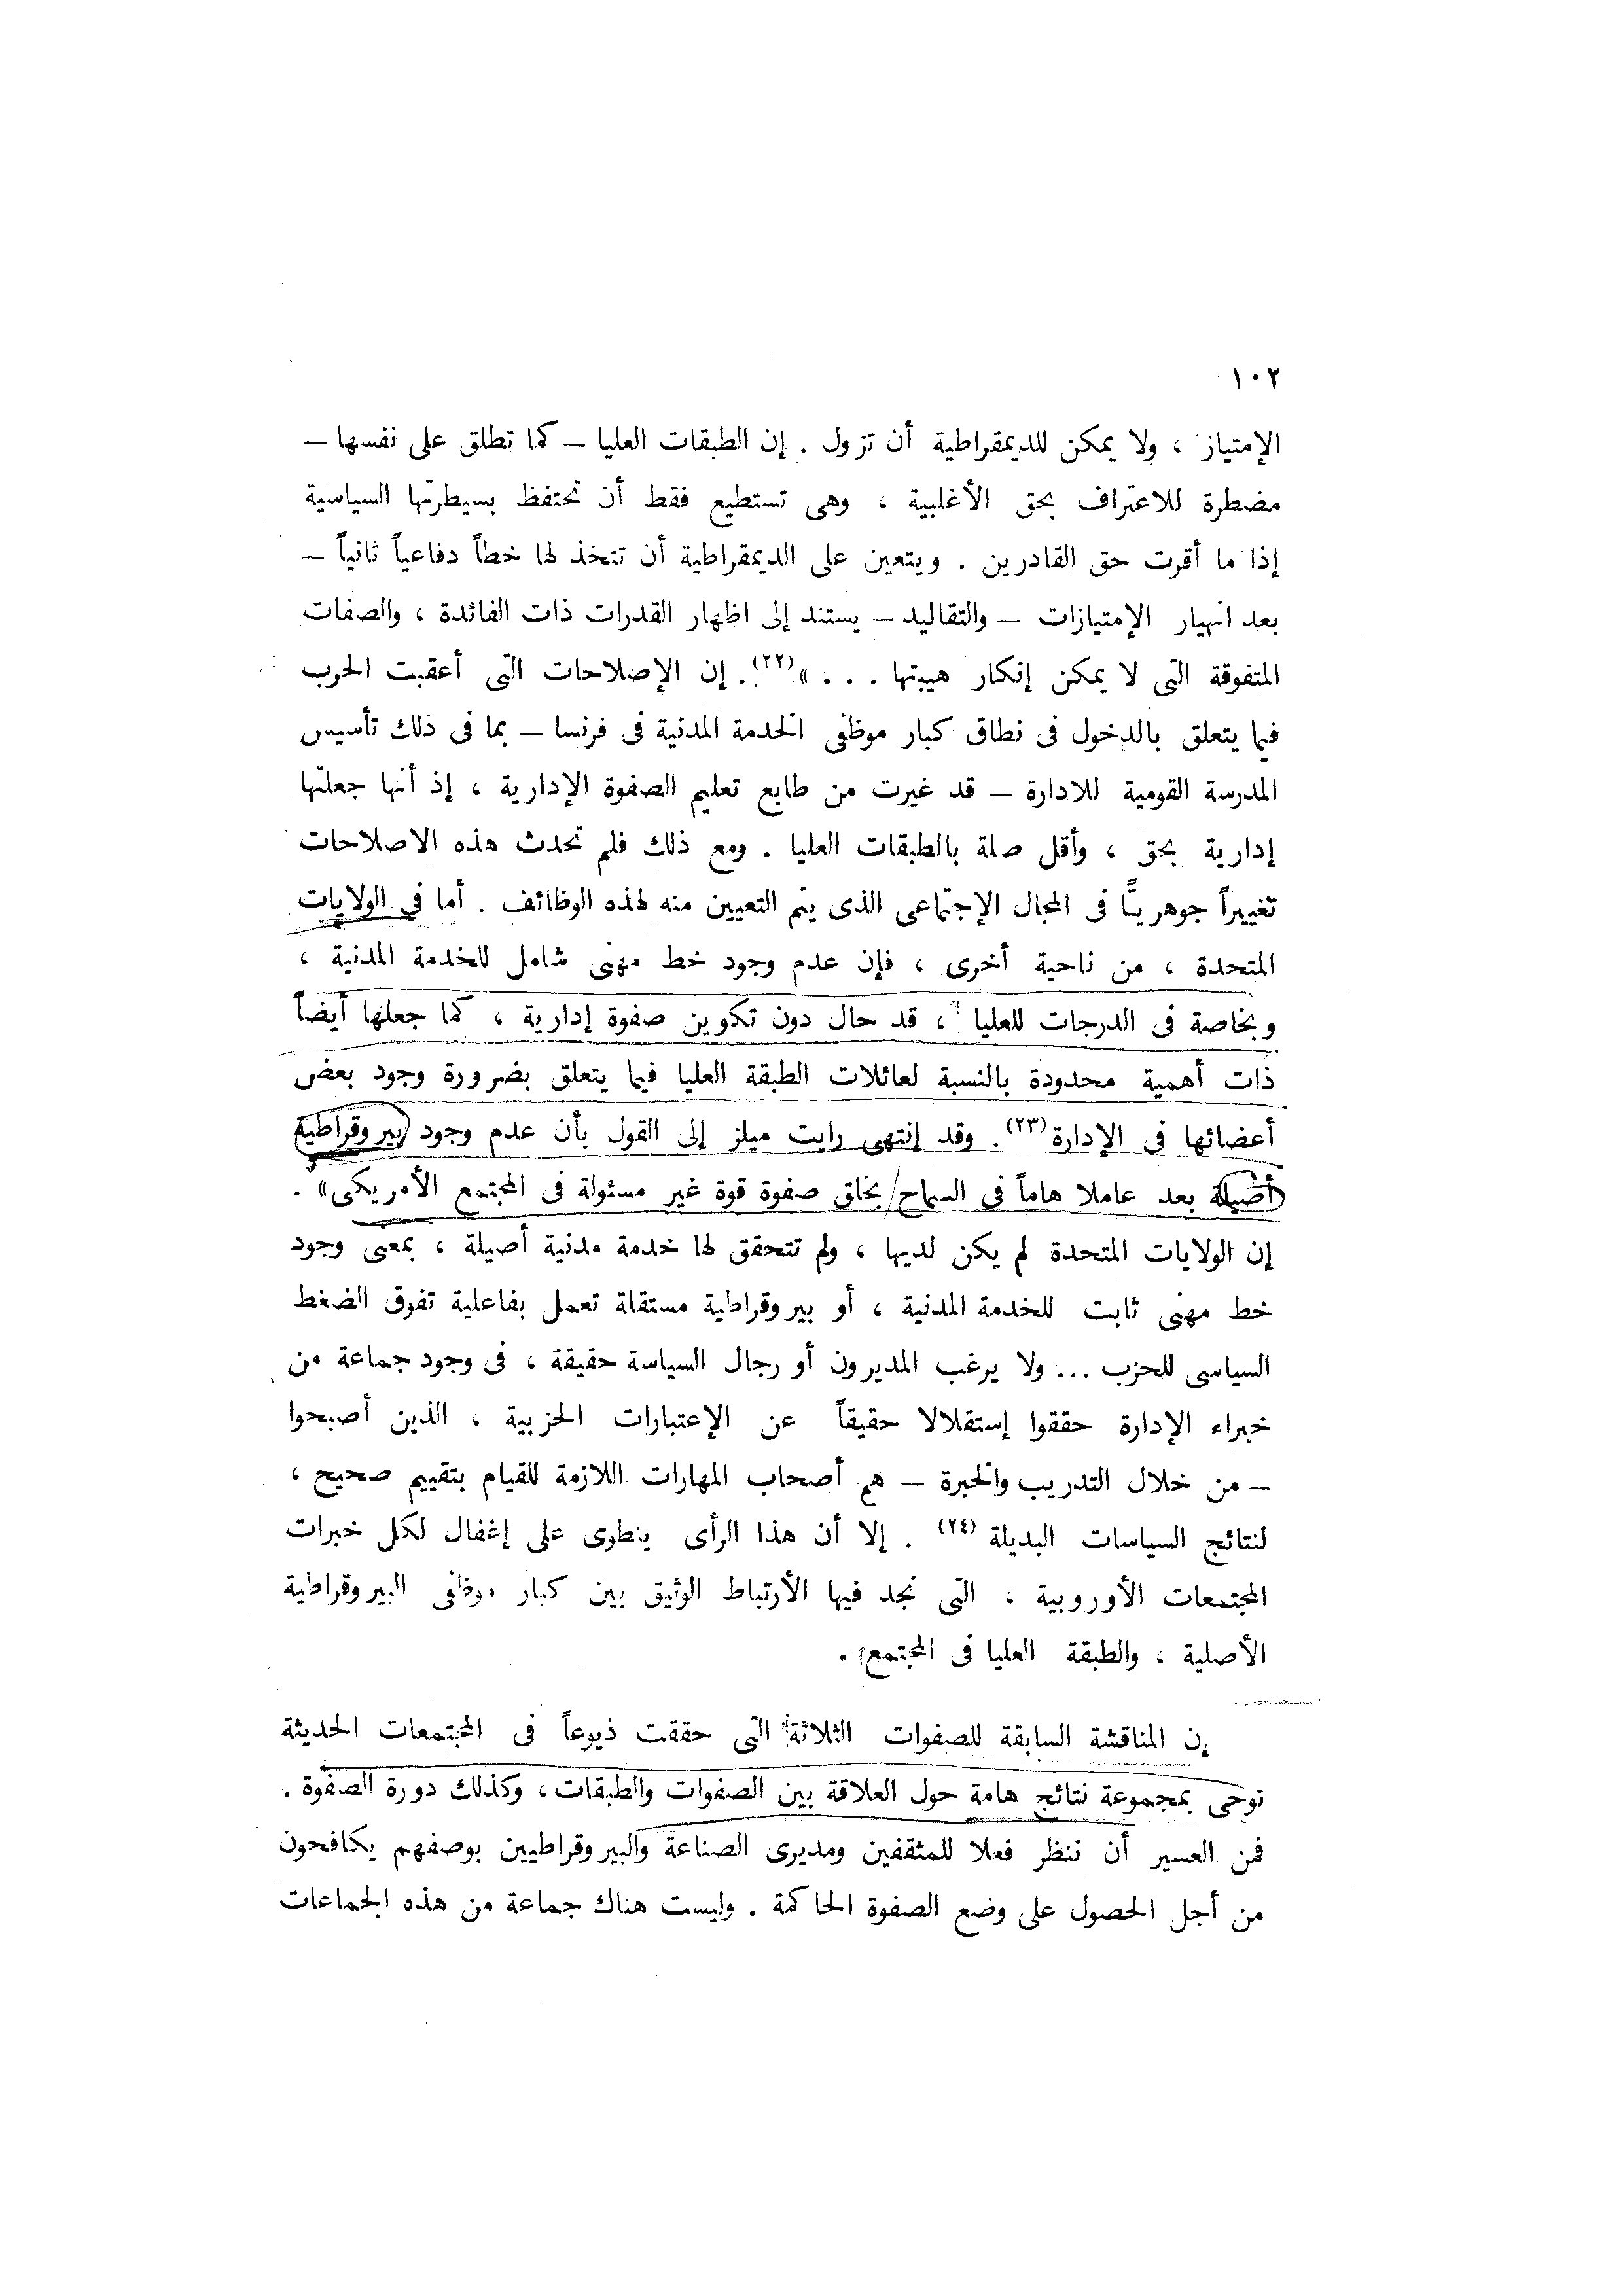 ١٠٢
الإمتياز ، ولا يمكن للديمقراطية أن تزول . إن الطبقات العليا – كما تطلق على نفسها –
مضطرة للاعتراف بحق الأغلبية ، وهى تستطيع فقط أن تحتفظ بسيطرتها السياسية
إذا ما أقرت حق القادرين . ويتعين على الديمقراطية أن تتخذ لها خطاً دفاعياً ثانياً –
بعد انهيار الإمتيازات – والتقاليد – يستند إلى اظهار القدرات ذات الفائدة ، والصفات
المتفوقة التى لا يمكن إنكار هيبتها . . . »(٢٢). إن الإصلاحات التى أعقبت الحرب
فيما يتعلق بالدخول فى نطاق كبار موظفى الخدمة المدنية فى فرنسا – بما فى ذلك تأسيس
المدرسة القومية للادارة – قد غيرت من طابع تعليم الصفوة الإدارية ، إذ أنها جعلتها
إدارية بحق ، وأقل صلة بالطبقات العليا . ومع ذلك فلم تحدث هذه الاصلاحات
تغييراً جوهريًّا فى المجال الإجتماعى الذى يتم التعيين منه لهذه الوظائف . أما فى الولايات
المتحدة ، من ناحية أخرى ، فإن عدم وجود خط مهنى شامل للخدمة المدنية ،
وبخاصة فى الدرجات للعليا ، قد حال دون تكوين صفوة إدارية ، كما جعلها أيضاً
ذات أهمية محدودة بالنسبة لعائلات الطبقة العليا فيما يتعلق بضرورة وجود بعض
أعضائها فى الإدارة(٢٣). وقد إنتهى رايت ميلز إلى القول بأن عدم وجود بيروقراطية
أصيلة بعد عاملا هاماً فى السماح بخلق صفوة قوة غير مسئولة فى المجتمع الأمريكى» .
إن الولايات المتحدة لم يكن لديها ، ولم تتحقق لها خدمة مدنية أصيلة ، بمعنى وجود
خط مهنى ثابت للخدمة المدنية ، أو بيروقراطية مستقلة تعمل بفاعلية تفوق الضغط
السياسى للحزب ... ولا يرغب المديرون أو رجال السياسة حقيقة ، فى وجود جماعة من
خبراء الإدارة حققوا إستقلالا حقيقاً عن الإعتبارات الحزبية ، الذين أصبحوا
– من خلال التدريب والخبرة – هم أصحاب المهارات اللازمة للقيام بتقييم صحيح ،
لنتائج السياسات البديلة (٢٤) . إلا أن هذا الرأى ينطوى على إغفال لكل خبرات
المجتمعات الأوروبية ، التى نجد فيها الأرتباط الوثيق بين كبار موظفى البيروقراطية
الأصلية ، والطبقة العليا فى المجتمع .
إن المناقشة السابقة للصفوات الثلاثة التى حققت ذيوعاً فى المجتمعات الحديثة
توحى بمجموعة نتائج هامة حول العلاقة بين الصفوات والطبقات ، وكذلك دورة الصفوة .
فمن العسير أن ننظر فعلا للمثقفين ومديرى الصناعة والبيروقراطيين بوصفهم يكافحون
من أجل الحصول على وضع الصفوة الحاكمة . وليست هناك جماعة من هذه الجماعات